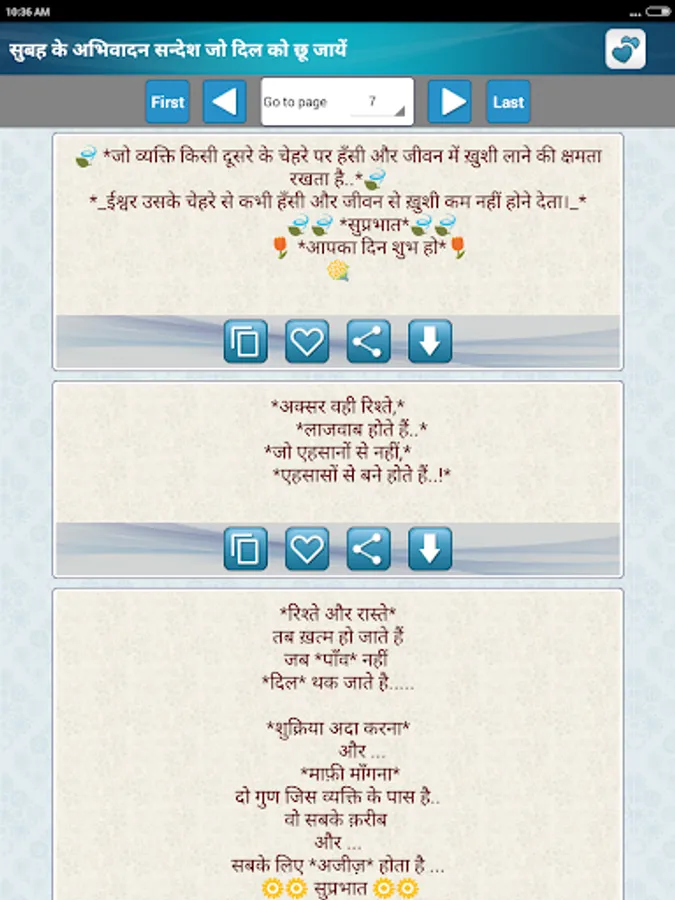 10:36 AM
सुबह के अभिवादन सन्देश जो दिल को छू जायें
First
Go to page 7
Last
🍃 *जो व्यक्ति किसी दूसरे के चेहरे पर हँसी और जीवन में ख़ुशी लाने की क्षमता
रखता है..*🍃
*_ईश्वर उसके चेहरे से कभी हँसी और जीवन से ख़ुशी कम नहीं होने देता।_*
🍃🍃 *सुप्रभात*🍃🍃
🌷 *आपका दिन शुभ हो*🌷
*अक्सर वही रिश्ते,*
*लाजवाब होते हैं..*
*जो एहसानों से नहीं,*
*एहसासों से बने होते हैं..!*
*रिश्ते और रास्ते*
तब ख़त्म हो जाते हैं
जब *पाँव* नहीं
*दिल* थक जाते है.....
*शुक्रिया अदा करना*
और ...
*माफ़ी माँगना*
दो गुण जिस व्यक्ति के पास है..
वो सबके क़रीब
और ...
सबके लिए *अजीज़* होता है ...
🌞🌞 सुप्रभात 🌞🌞